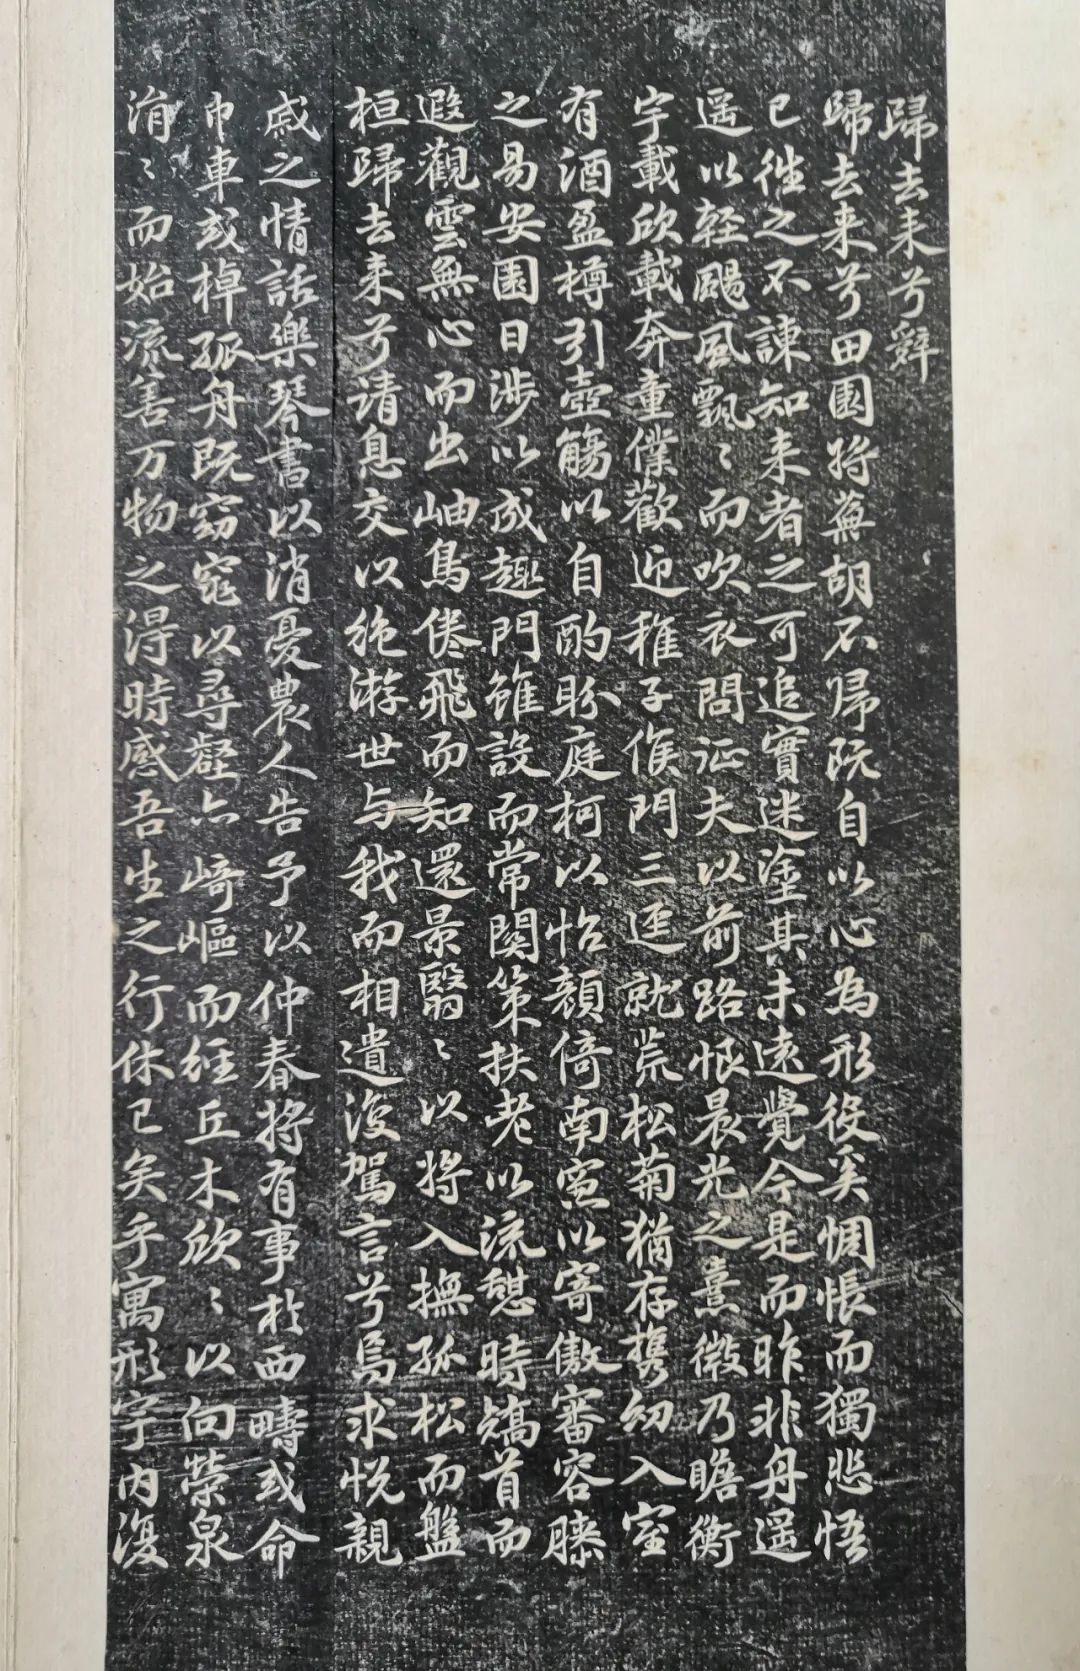 歸去来兮辭
歸去来兮田園将蕪胡不歸既自以心為形役奚惆悵而獨悲悟
已往之不諫知来者之可追實迷塗其未遠覺今是而昨非舟遥
遥以輕颺風飄〻而吹衣問征夫以前路恨晨光之熹微乃瞻衡
宇載欣載奔童僕歡迎稚子候門三逕就荒松菊猶存携幼入室
有酒盈樽引壺觴以自酌眄庭柯以怡顔倚南窓以寄傲審容膝
之易安園日涉以成趣門雖設而常関策扶老以流憩時矯首而
遐觀雲無心而出岫鳥倦飛而知還景翳〻以将入撫孤松而盤
桓歸去来兮请息交以絶游世与我而相遺復駕言兮焉求悦親
戚之情話樂琴書以消憂農人告予以仲春将有事於西疇或命
巾車或棹孤舟既窈窕以尋壑亦崎嶇而經丘木欣〻以向榮泉
涓〻而始流善万物之得時感吾生之行休已矣乎寓形宇内復